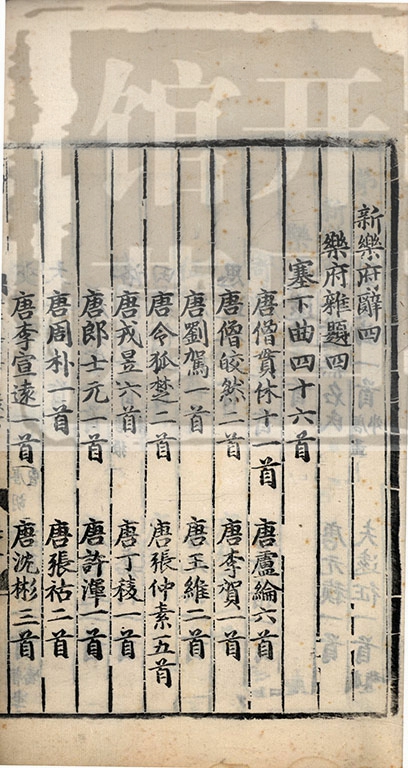 新樂府辭四
樂府雜題四
塞下曲四十六首
唐僧貫休十一首 唐盧綸六首
唐僧皎然二首 唐李賀一首
唐劉駕一首 唐王維二首
唐令狐楚二首 唐張仲素五首
唐戎昱六首 唐丁稜一首
唐郎士元一首 唐許渾一首
唐周朴一首 唐張祜二首
唐李宣遠一首 唐沈彬三首